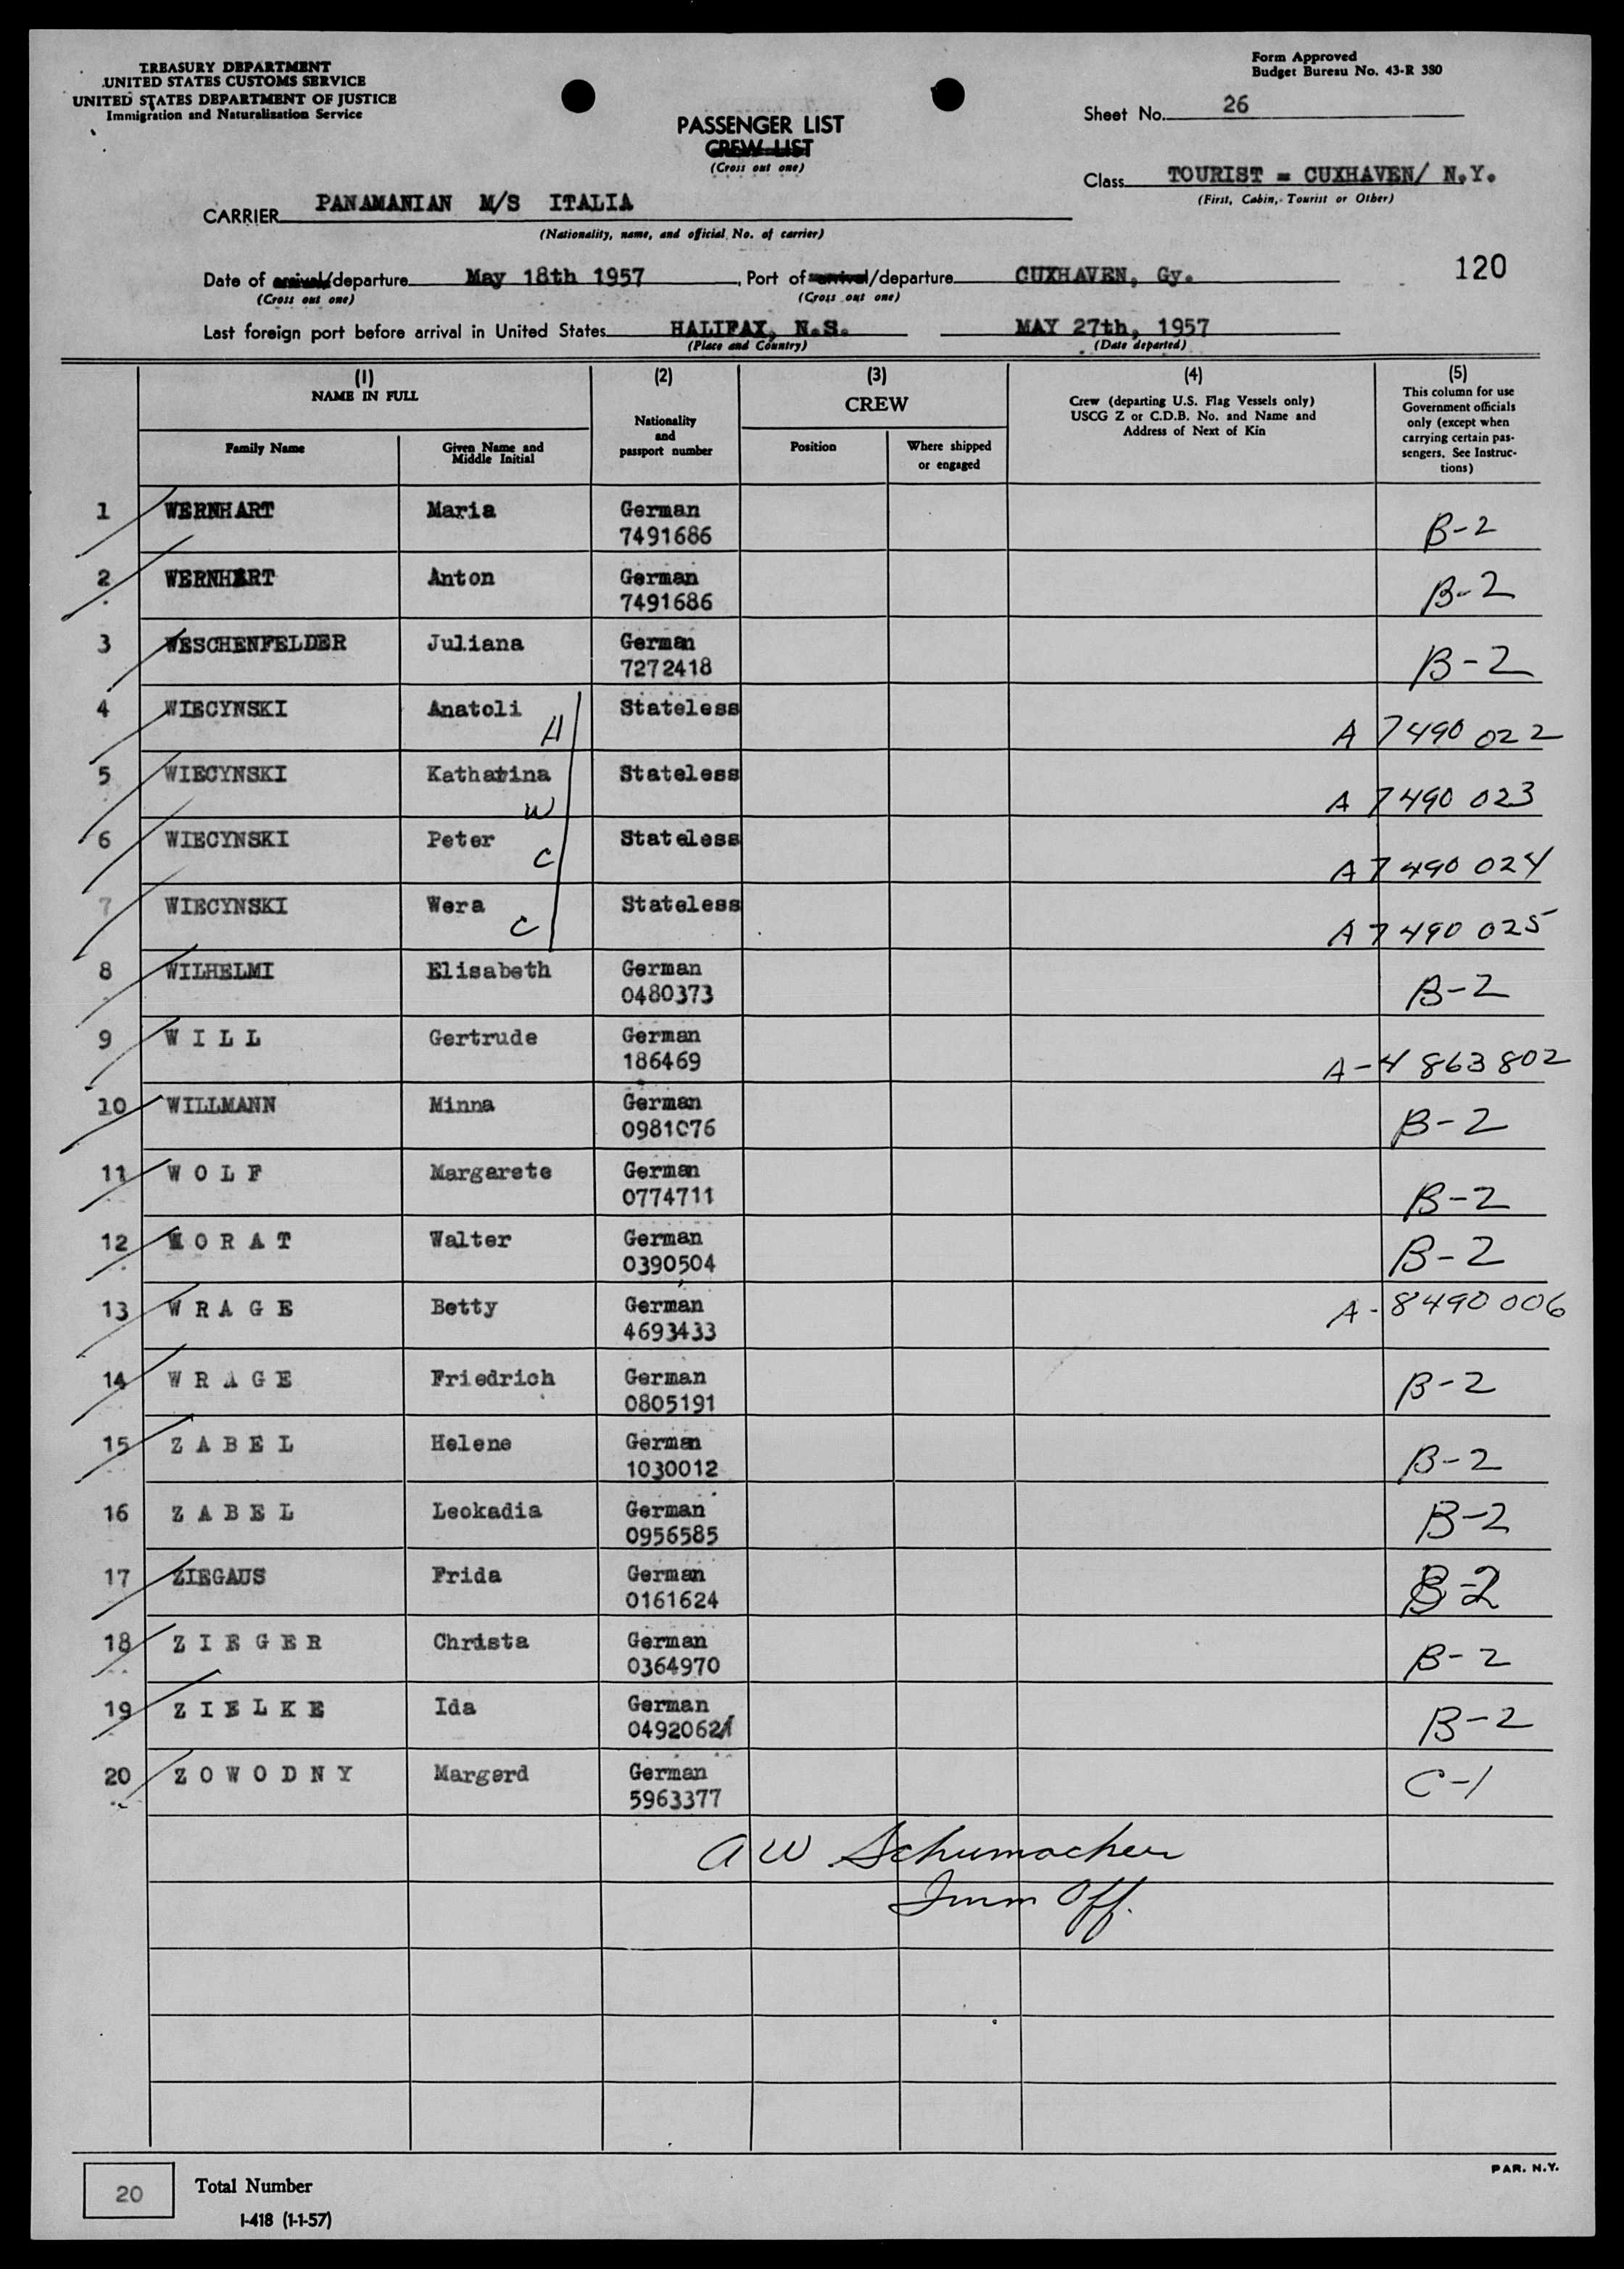 TREASURY DEPARTMENT
UNITED STATES CUSTOMS SERVICE
UNITED STATES DEPARTMENT OF JUSTICE
Immigration and Naturalization Service
Form Approved
Budget Bureau No. 43-R 380
PASSENGER LIST
CREW LIST
(Cross out one)
Sheet No. 26
Class TOURIST = CUXHAVEN/ N.Y.
(First, Cabin, Tourist or Other)
CARRIER PANAMANIAN M/S ITALIA
(Nationality, name, and official No. of carrier)
Date of arrival/departure May 18th 1957, Port of arrival/departure CUXHAVEN, Gy.
(Cross out one) (Cross out one)
120
Last foreign port before arrival in United States HALIFAX, N.S. MAY 27th, 1957
(Place and Country) (Date departed)
(1) NAME IN FULL
Family Name
Given Name and Middle Initial
(2)
Nationality and passport number
(3)
CREW
Position
Where shipped or engaged
(4)
Crew (departing U.S. Flag Vessels only)
USCG Z or C.D.B. No. and Name and
Address of Next of Kin
(5)
This column for use
Government officials
only (except when
carrying certain pas-
sengers. See Instruc-
tions)
1 WERNHART Maria German 7491686 B-2
2 WERNHART Anton German 7491686 B-2
3 WESCHENFELDER Juliana German 7272418 B-2
4 WIECYNSKI Anatoli H Stateless A 7490 022
5 WIECYNSKI Katharina W Stateless A 7490 023
6 WIECYNSKI Peter C Stateless A 7490 024
7 WIECYNSKI Wera C Stateless A 7490 025
8 WILHELMI Elisabeth German 0480373 B-2
9 W I L L Gertrude German 186469 A-4 863 802
10 WILLMANN Minna German 0981076 B-2
11 W O L F Margarete German 0774711 B-2
12 W O R A T Walter German 0390504 B-2
13 W R A G E Betty German 4693433 A-8490 006
14 W R A G E Friedrich German 0805191 B-2
15 Z A B E L Helene German 1030012 B-2
16 Z A B E L Leokadia German 0956585 B-2
17 ZIEGAUS Frida German 0161624 B-2
18 Z I E G E R Christa German 0364970 B-2
19 Z I E L K E Ida German 0492062 B-2
20 Z O W O D N Y Margerd German 5963377 C-1
A W Schumacher
Imm Off.
20 Total Number
I-418 (1-1-57)
PAR. N.Y.